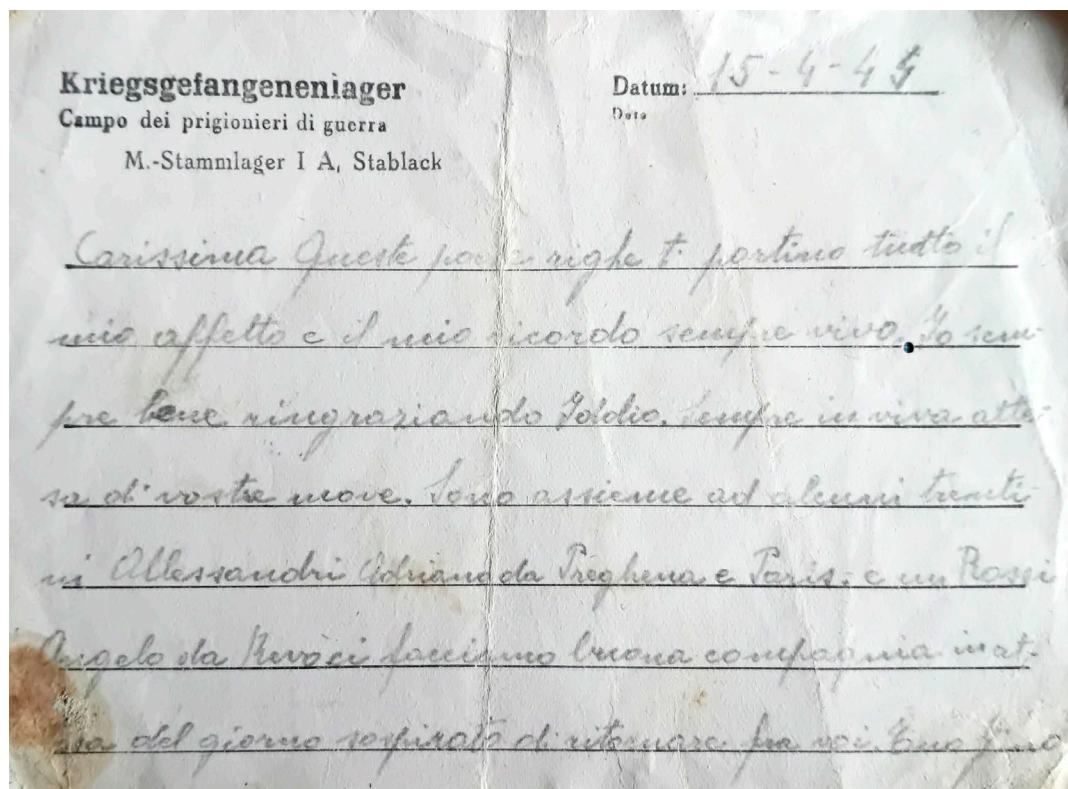 Kriegsgefangenenlager
Campo dei prigionieri di guerra
M.-Stammlager I A, Stablack
Datum: 15-4-45
Data
Carissima Queste poche righe ti portino tutto il
mio affetto e il mio ricordo sempre vivo. Io sem-
pre bene ringraziando Iddio. Sempre in viva atte-
sa di vostre nuove. Sono assieme ad alcuni trenti-
ni Allessandri Adriano da Preghena e Paris. e un Rossi
Angelo da Revò ci facciamo buona compagnia in at-
sa del giorno sospirato di ritornare fra voi. Tuo